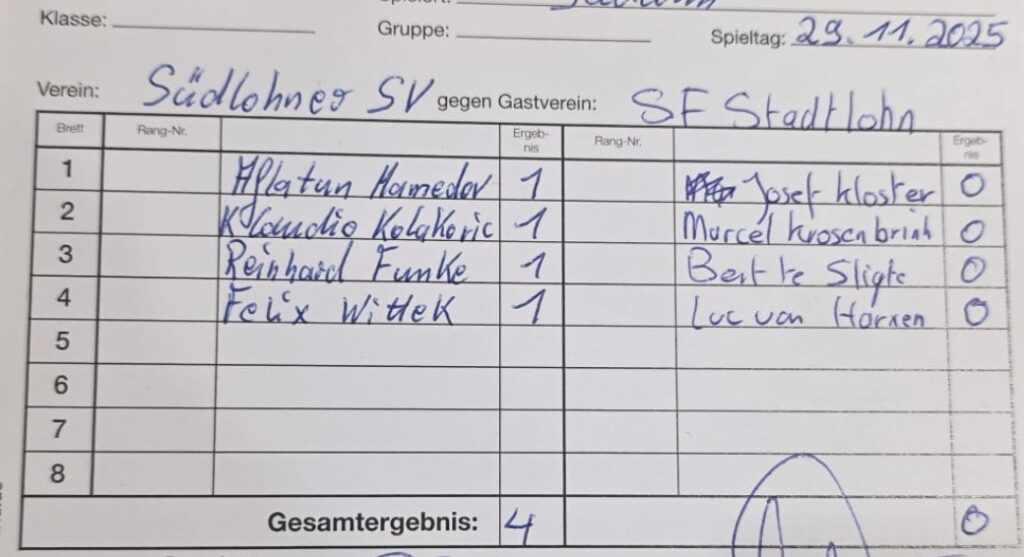 Klasse:
Gruppe:
Spieltag: 29.11.2025
Verein: Südlohner SV gegen Gastverein: SF Stadtlohn
Brett Rang-Nr. Ergeb-nis Rang-Nr. Ergeb-nis
1 Aflatun Mamedov 1 Josef Kloster 0
2 Klaudio Kolakovic 1 Marcel Krosenbrink 0
3 Reinhard Funke 1 Bert te Sligte 0
4 Felix Wittek 1 Luc van Harxen 0
5
6
7
8
Gesamtergebnis: 4 0